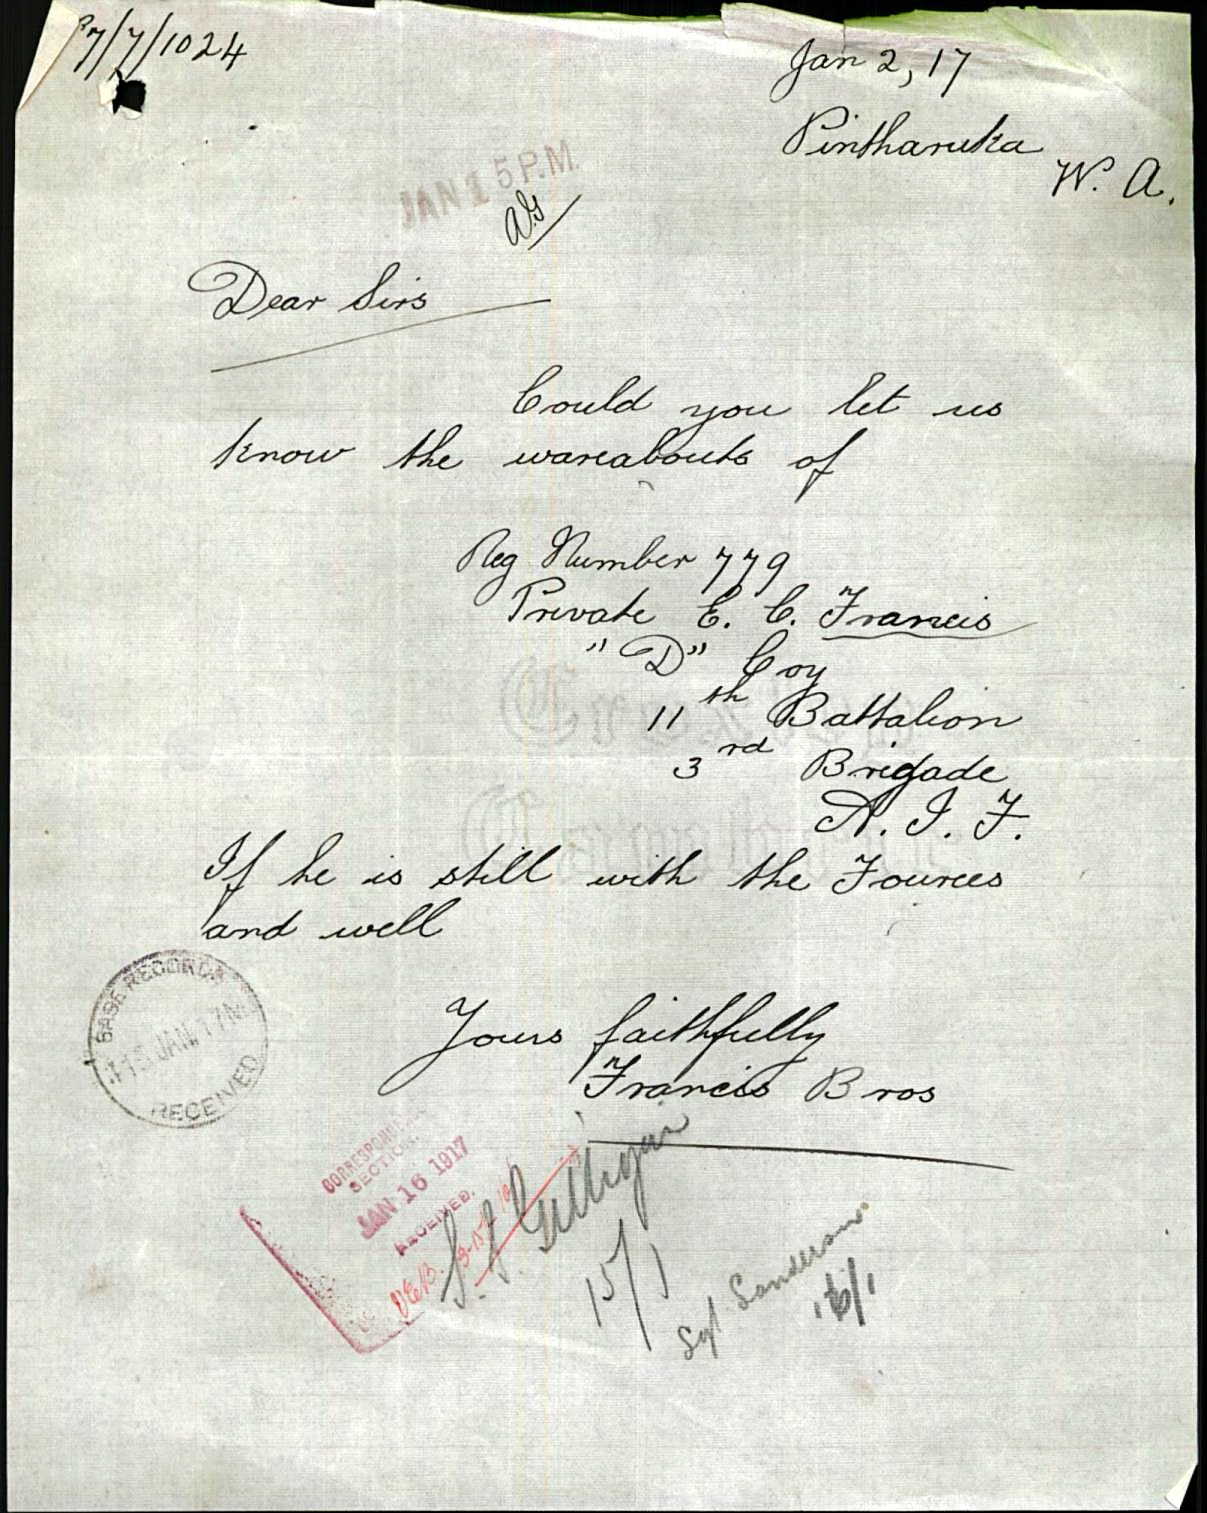 7/7/1024
Jan 2, 17
Pintharuka
W. A.
JAN 15 P.M.
Dear Sirs
Could you let us
know the wareabouts of
Reg Number 779
Private E. C. Francis
"D" Coy
11th Battalion
3rd Brigade
A. I. F.
If he is still with the Fources
and well
Yours faithfully
Francis Bros
BASE RECORDS
JAN. 17
RECEIVED
CORRESPONDENCE
SECTION.
JAN 16 1917
RECEIVED.
15/1
Sgt Sanderson
16/1